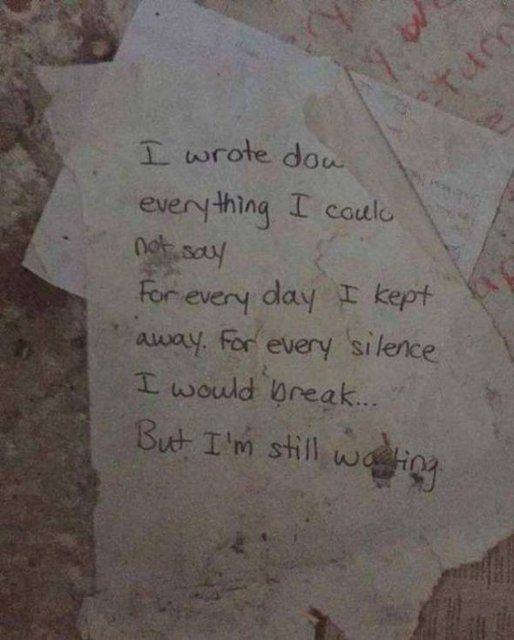 I wrote dow
everything I could
not say
For every day I kept
away. For every silence
I would break...
But I'm still